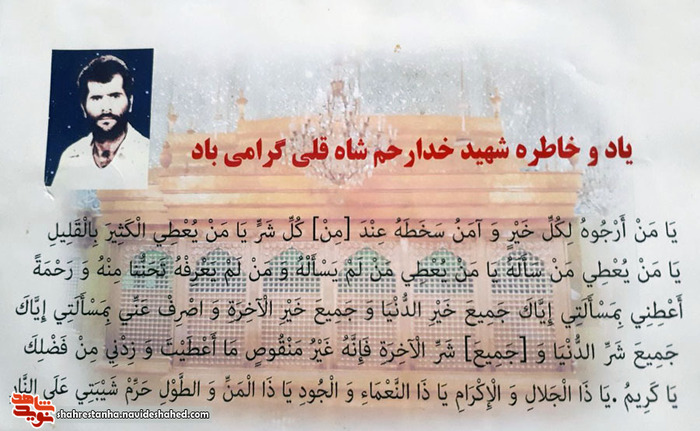 یاد و خاطره شهید خدارحم شاه قلی گرامی باد
يَا مَنْ أَرْجُوهُ لِكُلِّ خَيْرٍ وَ آمَنُ سَخَطَهُ عِنْدَ [مِنْ] كُلِّ شَرٍّ يَا مَنْ يُعْطِي الْكَثِيرَ بِالْقَلِيلِ
يَا مَنْ يُعْطِي مَنْ سَأَلَهُ يَا مَنْ يُعْطِي مَنْ لَمْ يَسْأَلْهُ وَ مَنْ لَمْ يَعْرِفْهُ تَحَنُّنًا مِنْهُ وَ رَحْمَةً
أَعْطِنِي بِمَسْأَلَتِي إِيَّاكَ جَمِيعَ خَيْرِ الدُّنْيَا وَ جَمِيعَ خَيْرِ الْآخِرَةِ وَ اصْرِفْ عَنِّي بِمَسْأَلَتِي إِيَّاكَ
جَمِيعَ شَرِّ الدُّنْيَا وَ [جَمِيعَ] شَرِّ الْآخِرَةِ فَإِنَّهُ غَيْرُ مَنْقُوصٍ مَا أَعْطَيْتَ وَ زِدْنِي مِنْ فَضْلِكَ
يَا كَرِيمُ .يَا ذَا الْجَلالِ وَ الْإِكْرَامِ يَا ذَا النَّعْمَاءِ وَ الْجُودِ يَا ذَا الْمَنِّ وَ الطَّوْلِ حَرِّمْ شَيْبَتِي عَلَى النَّارِ
نوید شاهد
shahrestanha.navideshahed.com